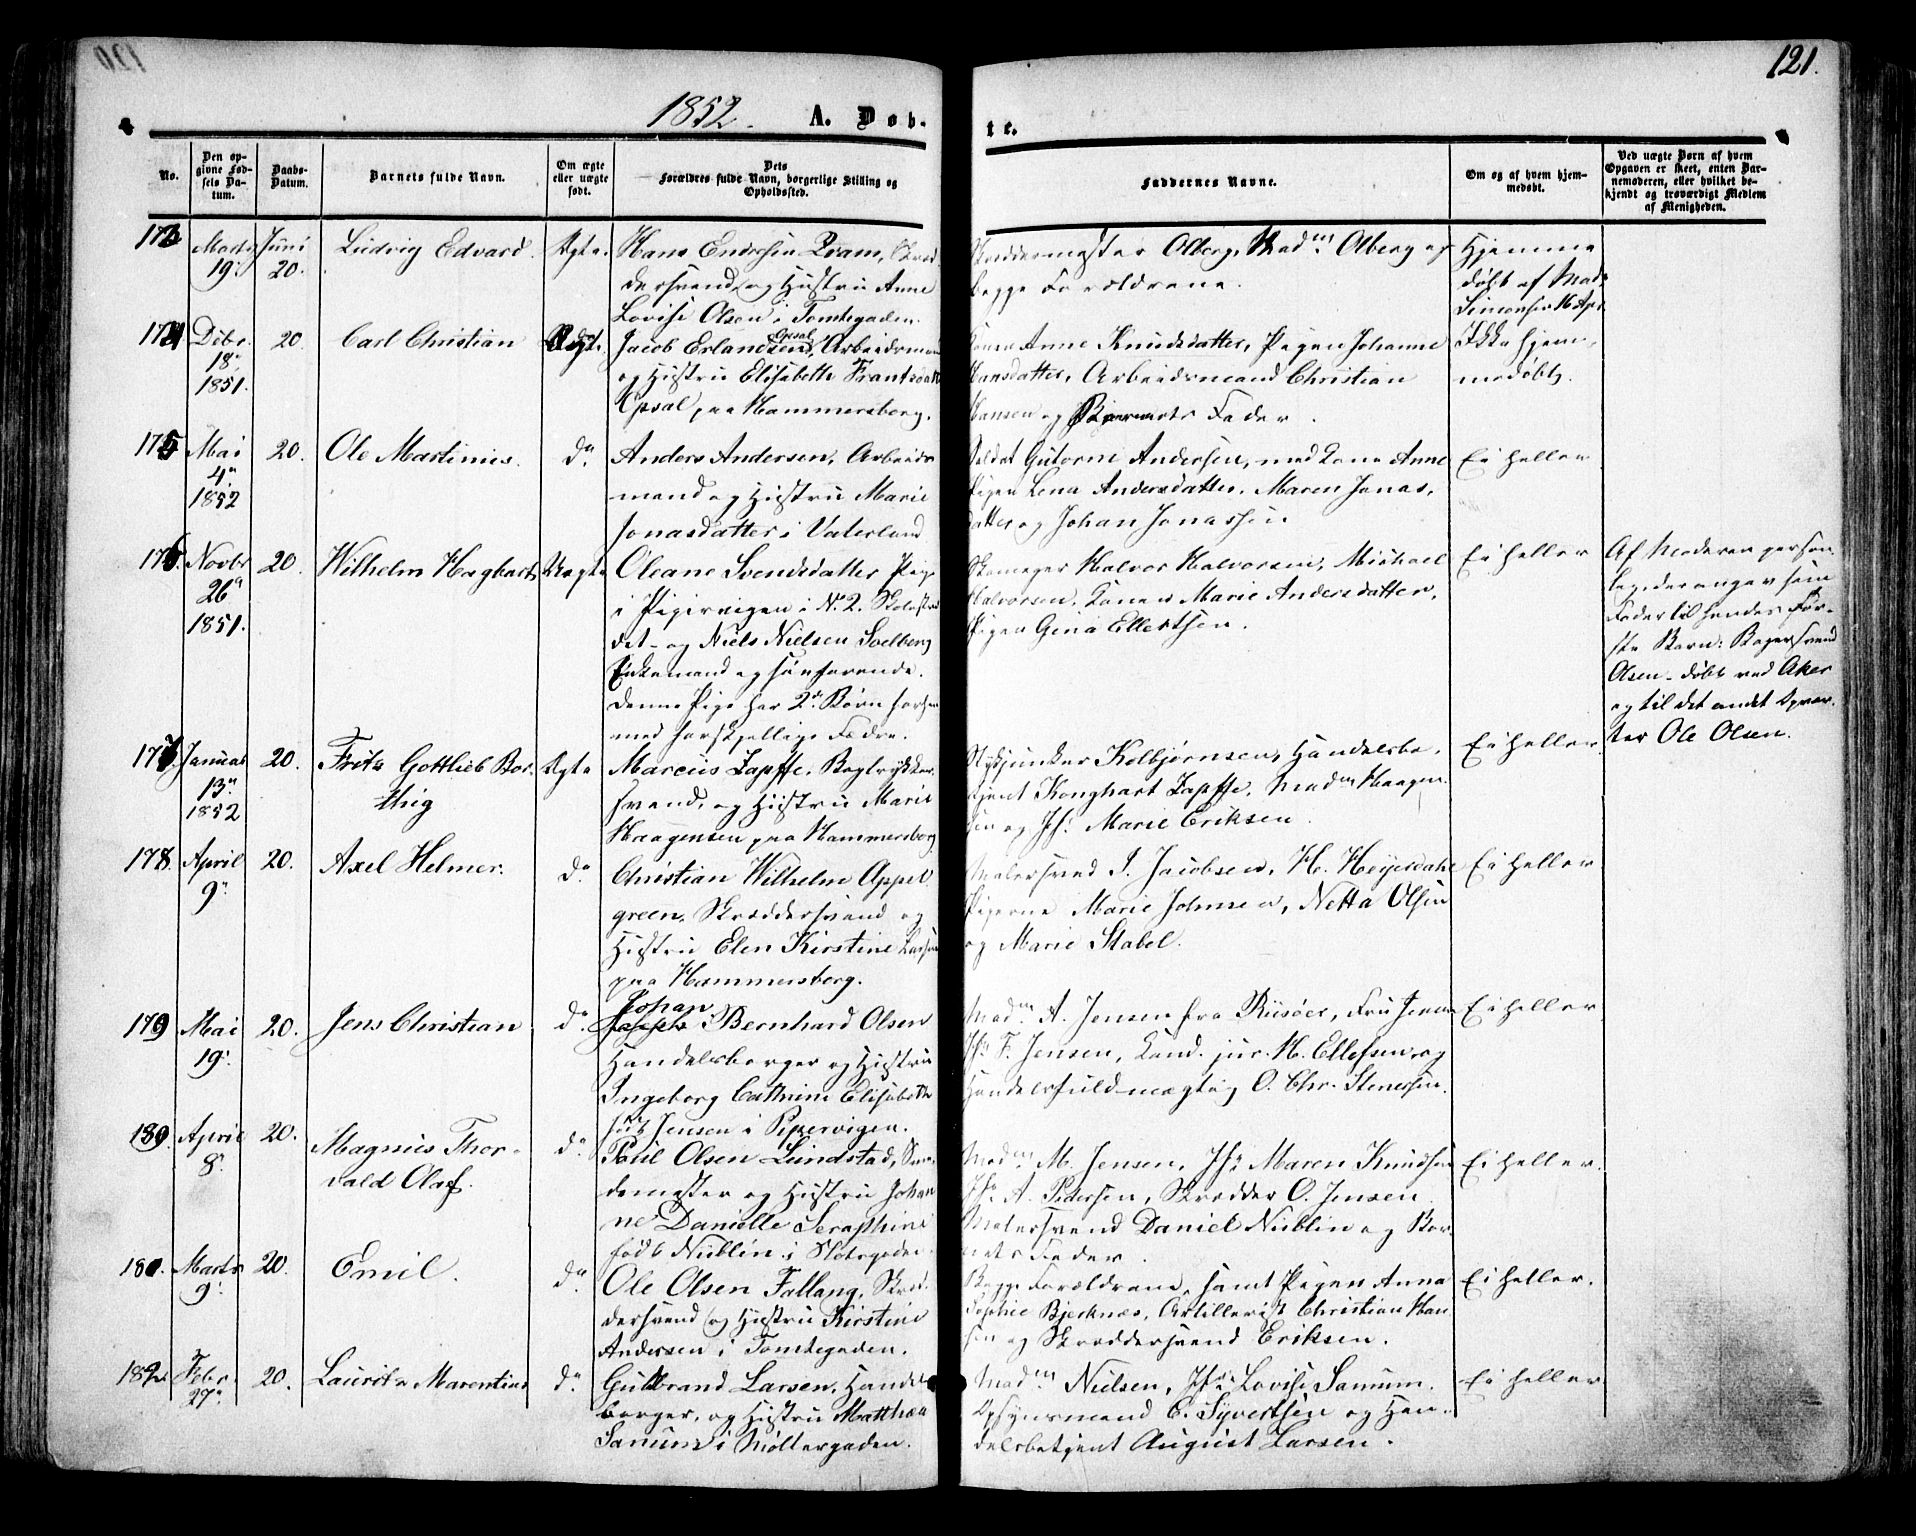 121.
1852. A. Døb-
te.
No.
Den op-
givne Fød-
sels Da-
tum.
Daabs-
Datum.
Barnets fulde Navn.
Om ægte
eller uægte
født.
Dets
Forældres fulde Navn, borgerlige Stilling og
Opholdssted.
Faddernes Navne.
Om og af hvem hjem-
medøbt.
Ved uægte Børn af hvem
Opgaven er skeet, enten Bar-
nemoderen, eller hvilket be-
kjendt og troværdigt Medlem
af Menigheden.
Marts
19.
Juni
20.
Ludvig Edvard.
Ægte.
Hans Endresen Qvam, Skræd
dersvend og Hustru Anne
Lovise Olsen i Tomtegaden.
Skræddermester Olberg, Madm. Olberg og
begge Forældrene.
Hjemme
døbt af Mad.
Simonsen 16 Apr.
174
Debr.
18.
1851.
20.
Carl Christian
Ægte.
Jacob Erlandsen Opsal, Arbeidsmand
og Hustru Elisabeth Frantsdatter
Opsal paa Hammersborg.
Konen Anne Knudsdatter, Pigen Johanne
Hansdatter, Arbeidsmand Christian
Hansen og Barnets Fader.
Ikke hjem-
medøbt.
175
Mai
4.
1852
20.
Ole Martinius.
do.
Anders Andersen, Arbeids
mand og Hustru Marie
Jonasdatter i Vaterland
Soldat Guttorm Andersen, med Kone Anne
Pigen Lena Andersdatter, Maren Jonas-
datter og Johan Jonassen
Ei heller
176.
Novbr
26.
1851.
20.
Wilhelm Haghart
Uægte
Oleane Svendsdatter Pige
i Pipervigen i No. 2. Skolestræ
det - og Niels Nielsen Solberg
Enkemand og søefarende.
Denne Pige har 2de Børn forhen
med forskjellige Fædre.
Skomager Halvor Halvorsen, Michael
Halvorsen, Konen Marie Andersdatter,
Pigen Gina Ellertsen.
Ei heller
Af Moderen person-
lig; der angav som
Fader til hendes før-
ste Barn: Bagersvend
Olsen - døbt ved Aker
og til det andet
Ole Olsen.
177.
Januar
13.
1852
20.
Fritz Gottlieb Bor-
thig
Ægte
Marcus Zapffe, Bogtrykker-
svend, og Hustru Marie
Haagensen paa Hammersborg
Stykjunker Kolbjørnsen, Handelsbe-
tjent Konghart Zapffe, Madm Haagen-
sen og Jfr. Marie Eriksen.
Ei heller.
178.
April
9.
20.
Axel Helmer.
do.
Christian Wilhelm Appel
green, Skræddersvend og
Hustru Elen Kirstine Larsen
paa Hammersborg.
Malersvend J. Jacobsen, H. Heyerdahl
Pigerne Marie Johnsen, Netta Olsen
og Marie Stabel.
Ei heller
179
Mai
19.
20.
Jens Christian
do.
Johan
Bernhard Olsen
Handelsborger og Hustru
Ingeborg Cathrine Elisabeth
født Jensen i Pipervigen.
Madm. A. Jensen fra Risøer, Fru Jensen
Jfr. F. Jensen, Kand. jur. H. Ellefsen og
Handelsfuldmægtig O. Chr. Stenersen.
Ei heller
180.
April
8.
20.
Magnus Thor-
vald Olaf.
do.
Poul Olsen Lundstad, Sme-
demester og Hustru Johan
ne Danielle Seraphine
født Nüblin i Slotsgaden.
Madm. M. Jensen, Jfr. Maren Knudsen
Jfr. A. Pedersen, Skrædder O. Jensen
Malersvend Daniel Nüblin og Bar-
nets Fader.
Ei heller.
181.
Marts
9.
20.
Emil.
do.
Ole Olsen Fallang, Skræd-
dersvend og Hustru Kirstine
Andersen i Tomtegaden.
Begge Forældrene, samt Pigen Anna
Sophie Bjerknæs, Artillerist Christian Han
sen og Skræddersvend Eriksen.
Ei heller.
182.
Febr.
27.
20.
Lauritz Marentius
do.
Gulbrand Larsen, Handels
borger, og Hustru Matthea
Sanum i Møllergaden.
Madm Nielsen, Jfr. Lovise Sanum.
Opsynsmand C. Syvertsen og Han-
delsbetjent August Larsen.
Ei heller